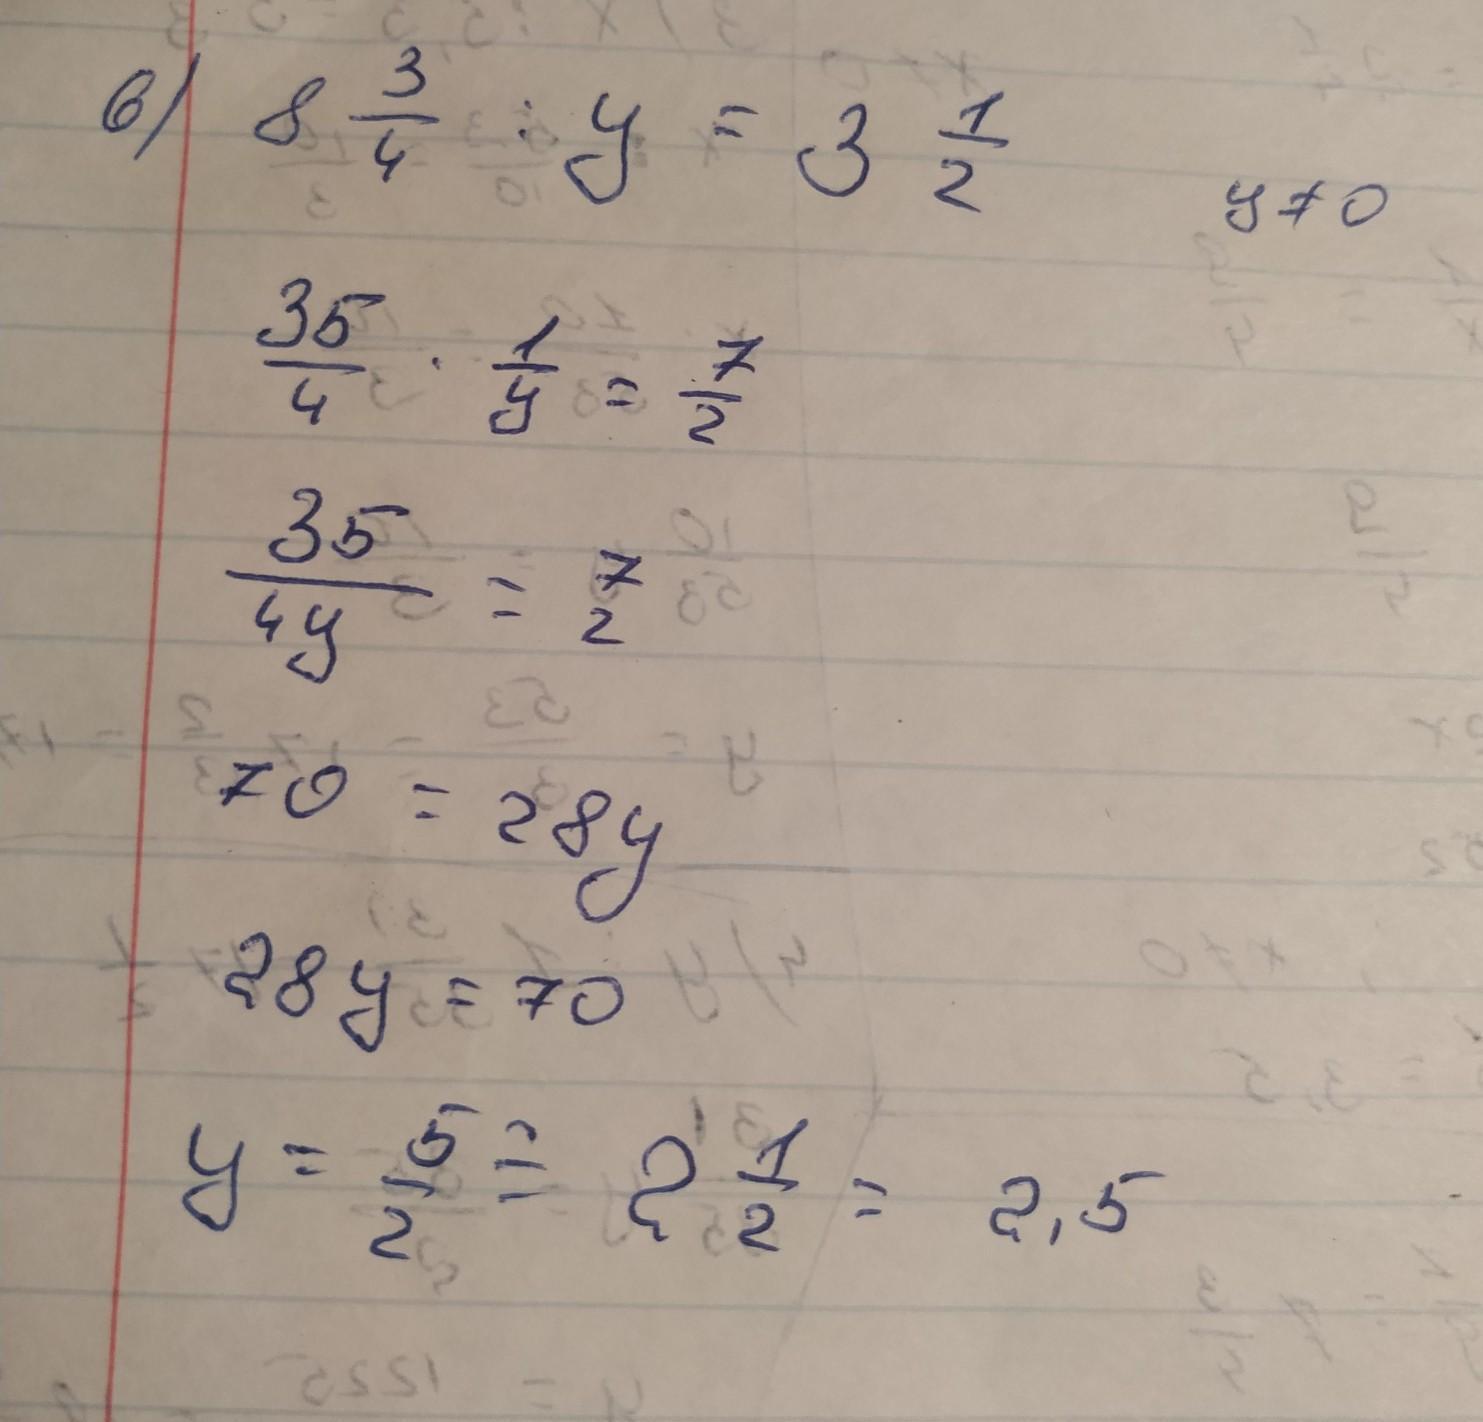 в) 8 3/4 : y = 3 1/2
y ≠ 0
35/4 · 1/y = 7/2
35/4y = 7/2
70 = 28y
28y = 70
y = 5/2 = 2 1/2 = 2,5